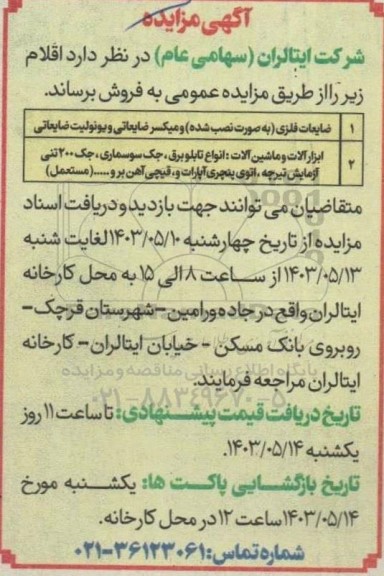 آگهی مزایده
شرکت ایتالران (سهامی عام) در نظر دارد اقلام
زیر رااز طریق مزایده عمومی به فروش برساند.
۱ ضایعات فلزی (به صورت نصب شده) و میکسر ضایعاتی و یونولیت ضایعاتی
۲ ابزارآلات و ماشین آلات : انواع تابلو برق ، جک سوسماری ، جک ۲۰۰ تنی
آزمایش تیرچه ، اتوی پنچری آپارات و، قیچی آهن بر و .....(مستعمل)
متقاضیان می توانند جهت بازدید و دریافت اسناد
مزایده از تاریخ چهارشنبه ۱۴۰۳/۰۵/۱۰ لغایت شنبه
۱۴۰۳/۰۵/۱۳ از ساعت ۸ الی ۱۵ به محل کارخانه
ایتالران واقع در جاده ورامین - شهرستان قرچک -
روبروی بانک مسکن - خیابان ایتالران - کارخانه
ایتالران مراجعه فرمایند.
پایگاه اطلاع رسانی مناقصه و مزایده
۰۲۱-۸۸۳۴۹۶۷۰-۵
تاریخ دریافت قیمت پیشنهادی: تا ساعت ۱۱ روز
یکشنبه ۱۴۰۳/۰۵/۱۴.
تاریخ بازگشایی پاکت ها: یکشنبه مورخ
۱۴۰۳/۰۵/۱۴ ساعت ۱۲ در محل کارخانه.
شماره تماس: ۳۶۱۲۳۰۶۱-۰۲۱